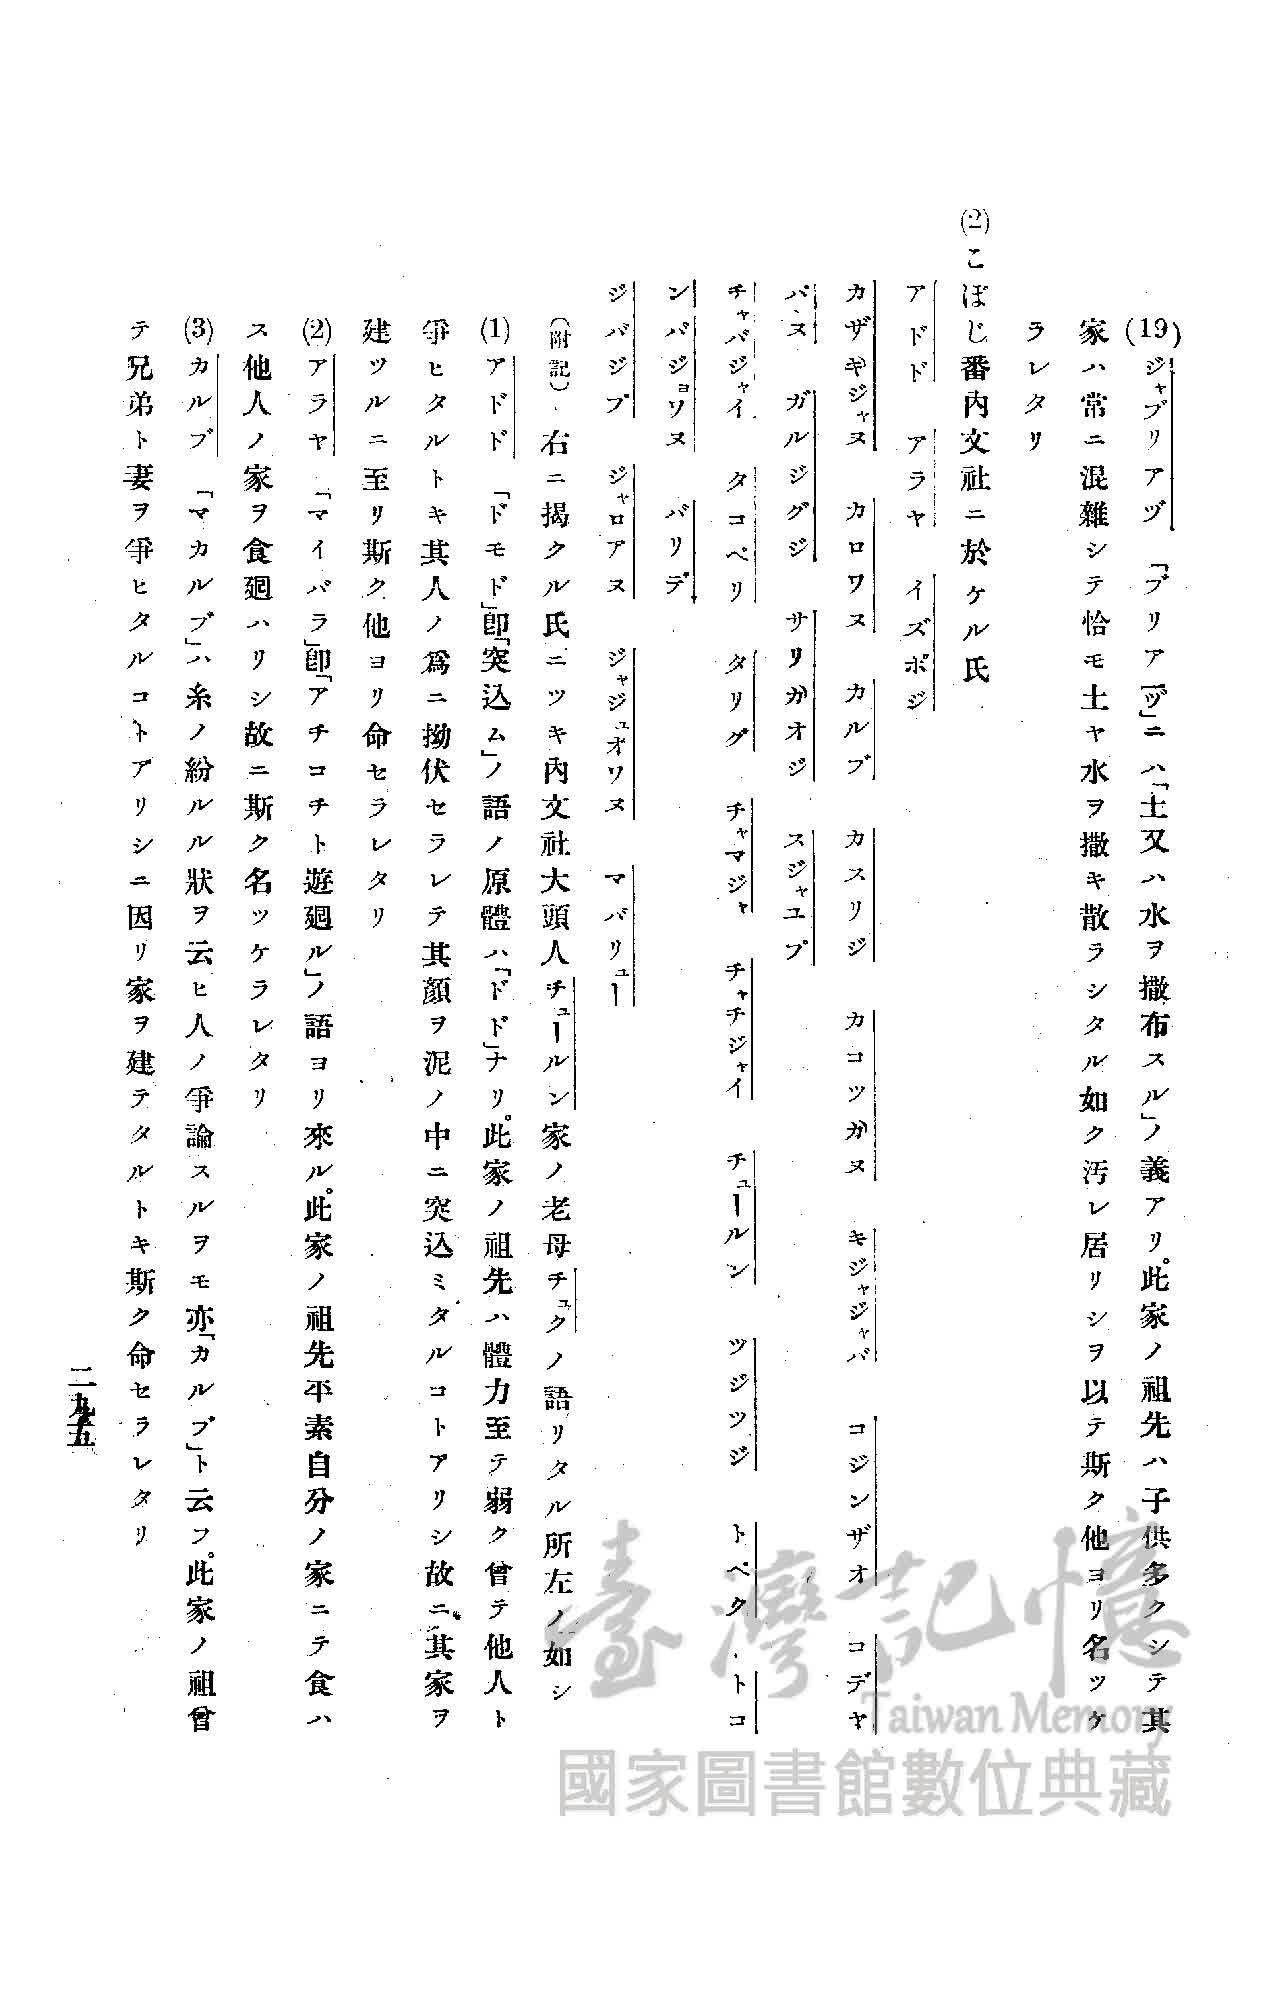 (19) ジャブリアヅ 「ブリアーヅ」ニハ「土又ハ水ヲ撒布スル」ノ義アリ。此家ノ祖先ハ子供多クシテ其
家ハ常ニ混雜シテ恰モ土ヤ水ヲ撒キ散ラシタル如ク汚レ居リシヲ以テ斯ク他ヨリ名ツケ
ラレタリ
(2) こぼじ番内文社ニ於ケル氏
アドド アラヤ イズポジ
カザキジャヌ カロワヌ カルブ カスリジ カコツガヌ キジャジャバ コジンザオ コデヤ
バヌ ガルジグジ サリガオジ スジャユプ
チャバジャイ タコベリ タリグ チャマジャ チャチジャイ チュールン ツジツジ トベク トコ
ンバジョワヌ バリデ
ジバジプ ジャロアヌ ジャジュオワヌ マバリュー
(附記) 右ニ揭クル氏ニツキ內文社大頭人チュールン家ノ老母チュクノ語リタル所左ノ如シ
(1) アドド 「ドモド」卽「突込ム」ノ語ノ原體ハ「ドド」ナリ。此家ノ祖先ハ體力至テ弱ク曾テ他人ト
爭ヒタルトキ其人ノ爲ニ拗伏セラレテ其顏ヲ泥ノ中ニ突込ミタルコトアリシ故ニ其家ヲ
建ツルニ至リ斯ク他ヨリ命セラレタリ
(2) アラヤ 「マイバラ」卽「アチコチト遊廻ル」ノ語ヨリ來ル。此家ノ祖先平素自分ノ家ニテ食ハ
ス他人ノ家ヲ食廻ハリシ故ニ斯ク名ツケラレタリ
(3) カルブ 「マカルブ」ハ糸ノ紛ルル狀ヲ云ヒ人ノ爭論スルヲモ亦「カルブ」ト云フ。此家ノ祖曾
テ兄弟ト妻ヲ爭ヒタルコトアリシニ因リ家ヲ建テタルトキ斯ク命セラレタリ
二九五
臺灣記憶
Taiwan Memory
國家圖書館數位典藏